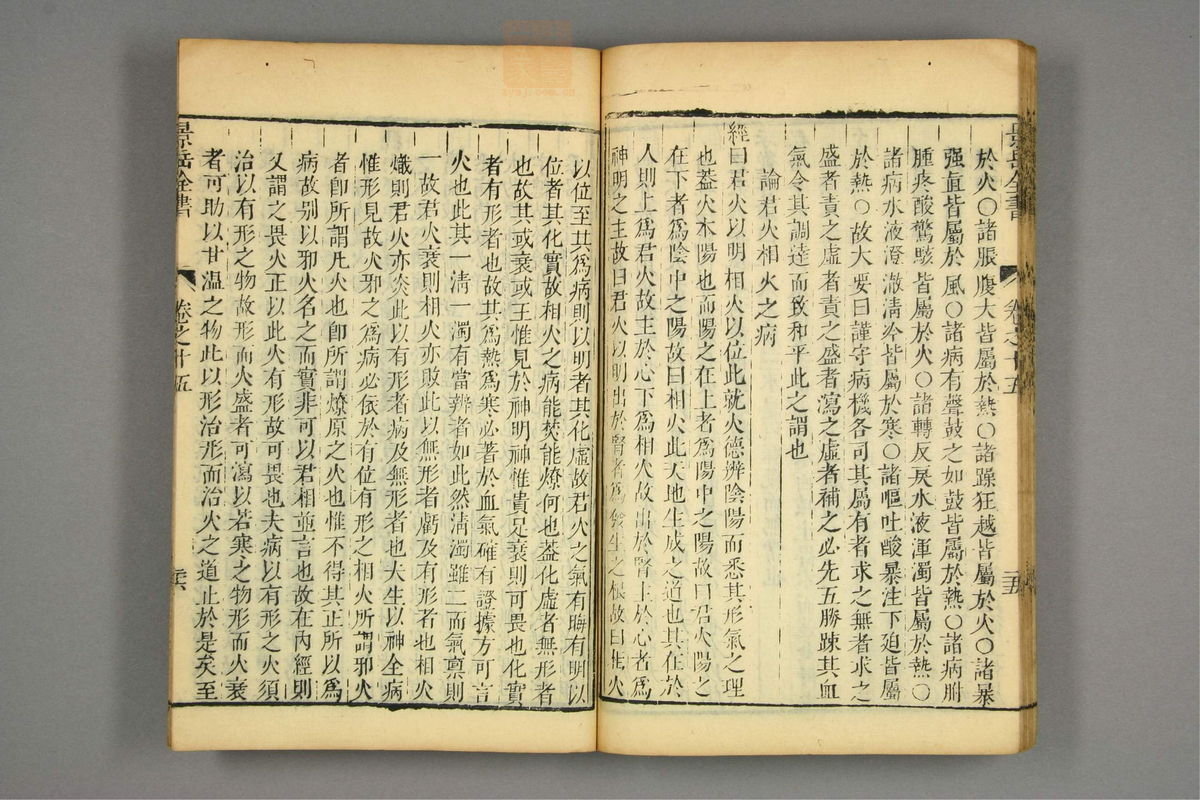 於火〇諸脹腹大皆屬於熱〇諸躁狂越皆屬於火〇諸暴
强直皆屬於風〇諸病有聲鼓之如鼓皆屬於熱〇諸病胕
腫疼酸驚駭皆屬於火〇諸轉反戾水液渾濁皆屬於熱〇
諸病水液澄澈淸冷皆屬於寒〇諸嘔吐酸暴注下廹皆屬
於熱〇故大要曰謹守病機各司其屬有者求之無者求之
盛者責之虛者責之盛者瀉之虛者補之必先五勝踈其血
氣令其調達而致和平此之謂也
論君火相火之病
經曰君火以明相火以位此就火德辨陰陽而悉其形氣之理
也葢火本陽也而陽之在上者爲陽中之陽故曰君火陽之
在下者爲陰中之陽故曰相火此天地生成之道也其在於
人則上爲君火故主於心下爲相火故出於腎主於心者爲
神明之主故曰君火以明出於腎者爲發生之根故曰相火
景岳全書
卷之十五
三五
以位至其爲病則以明者其化虛故君火之氣有晦有明以
位者其化實故相火之病能焚能燎何也葢化虛者無形者
也故其或衰或王惟見於神明神惟貴足衰則可畏也化實
者有形者也故其爲熱爲寒必著於血氣確有證據方可言
火也此其一淸一濁有當辨者如此然淸濁雖二而氣禀則
一故君火衰則相火亦敗此以無形者虧及有形者也相火
熾則君火亦炎此以有形者病及無形者也夫生以神全病
惟形見故火邪之爲病必依於有位有形之相火所謂邪火
者卽所謂凡火也卽所謂燎原之火也惟不得其正所以爲
病故别以邪火名之而實非可以君相並言也故在內經則
又謂之畏火正以此火有形故可畏也夫病以有形之火須
治以有形之物故形而火盛者可瀉以若寒之物形而火衰
者可助以甘温之物此以形治形而治火之道止於是矣至
景岳全書
卷之十五